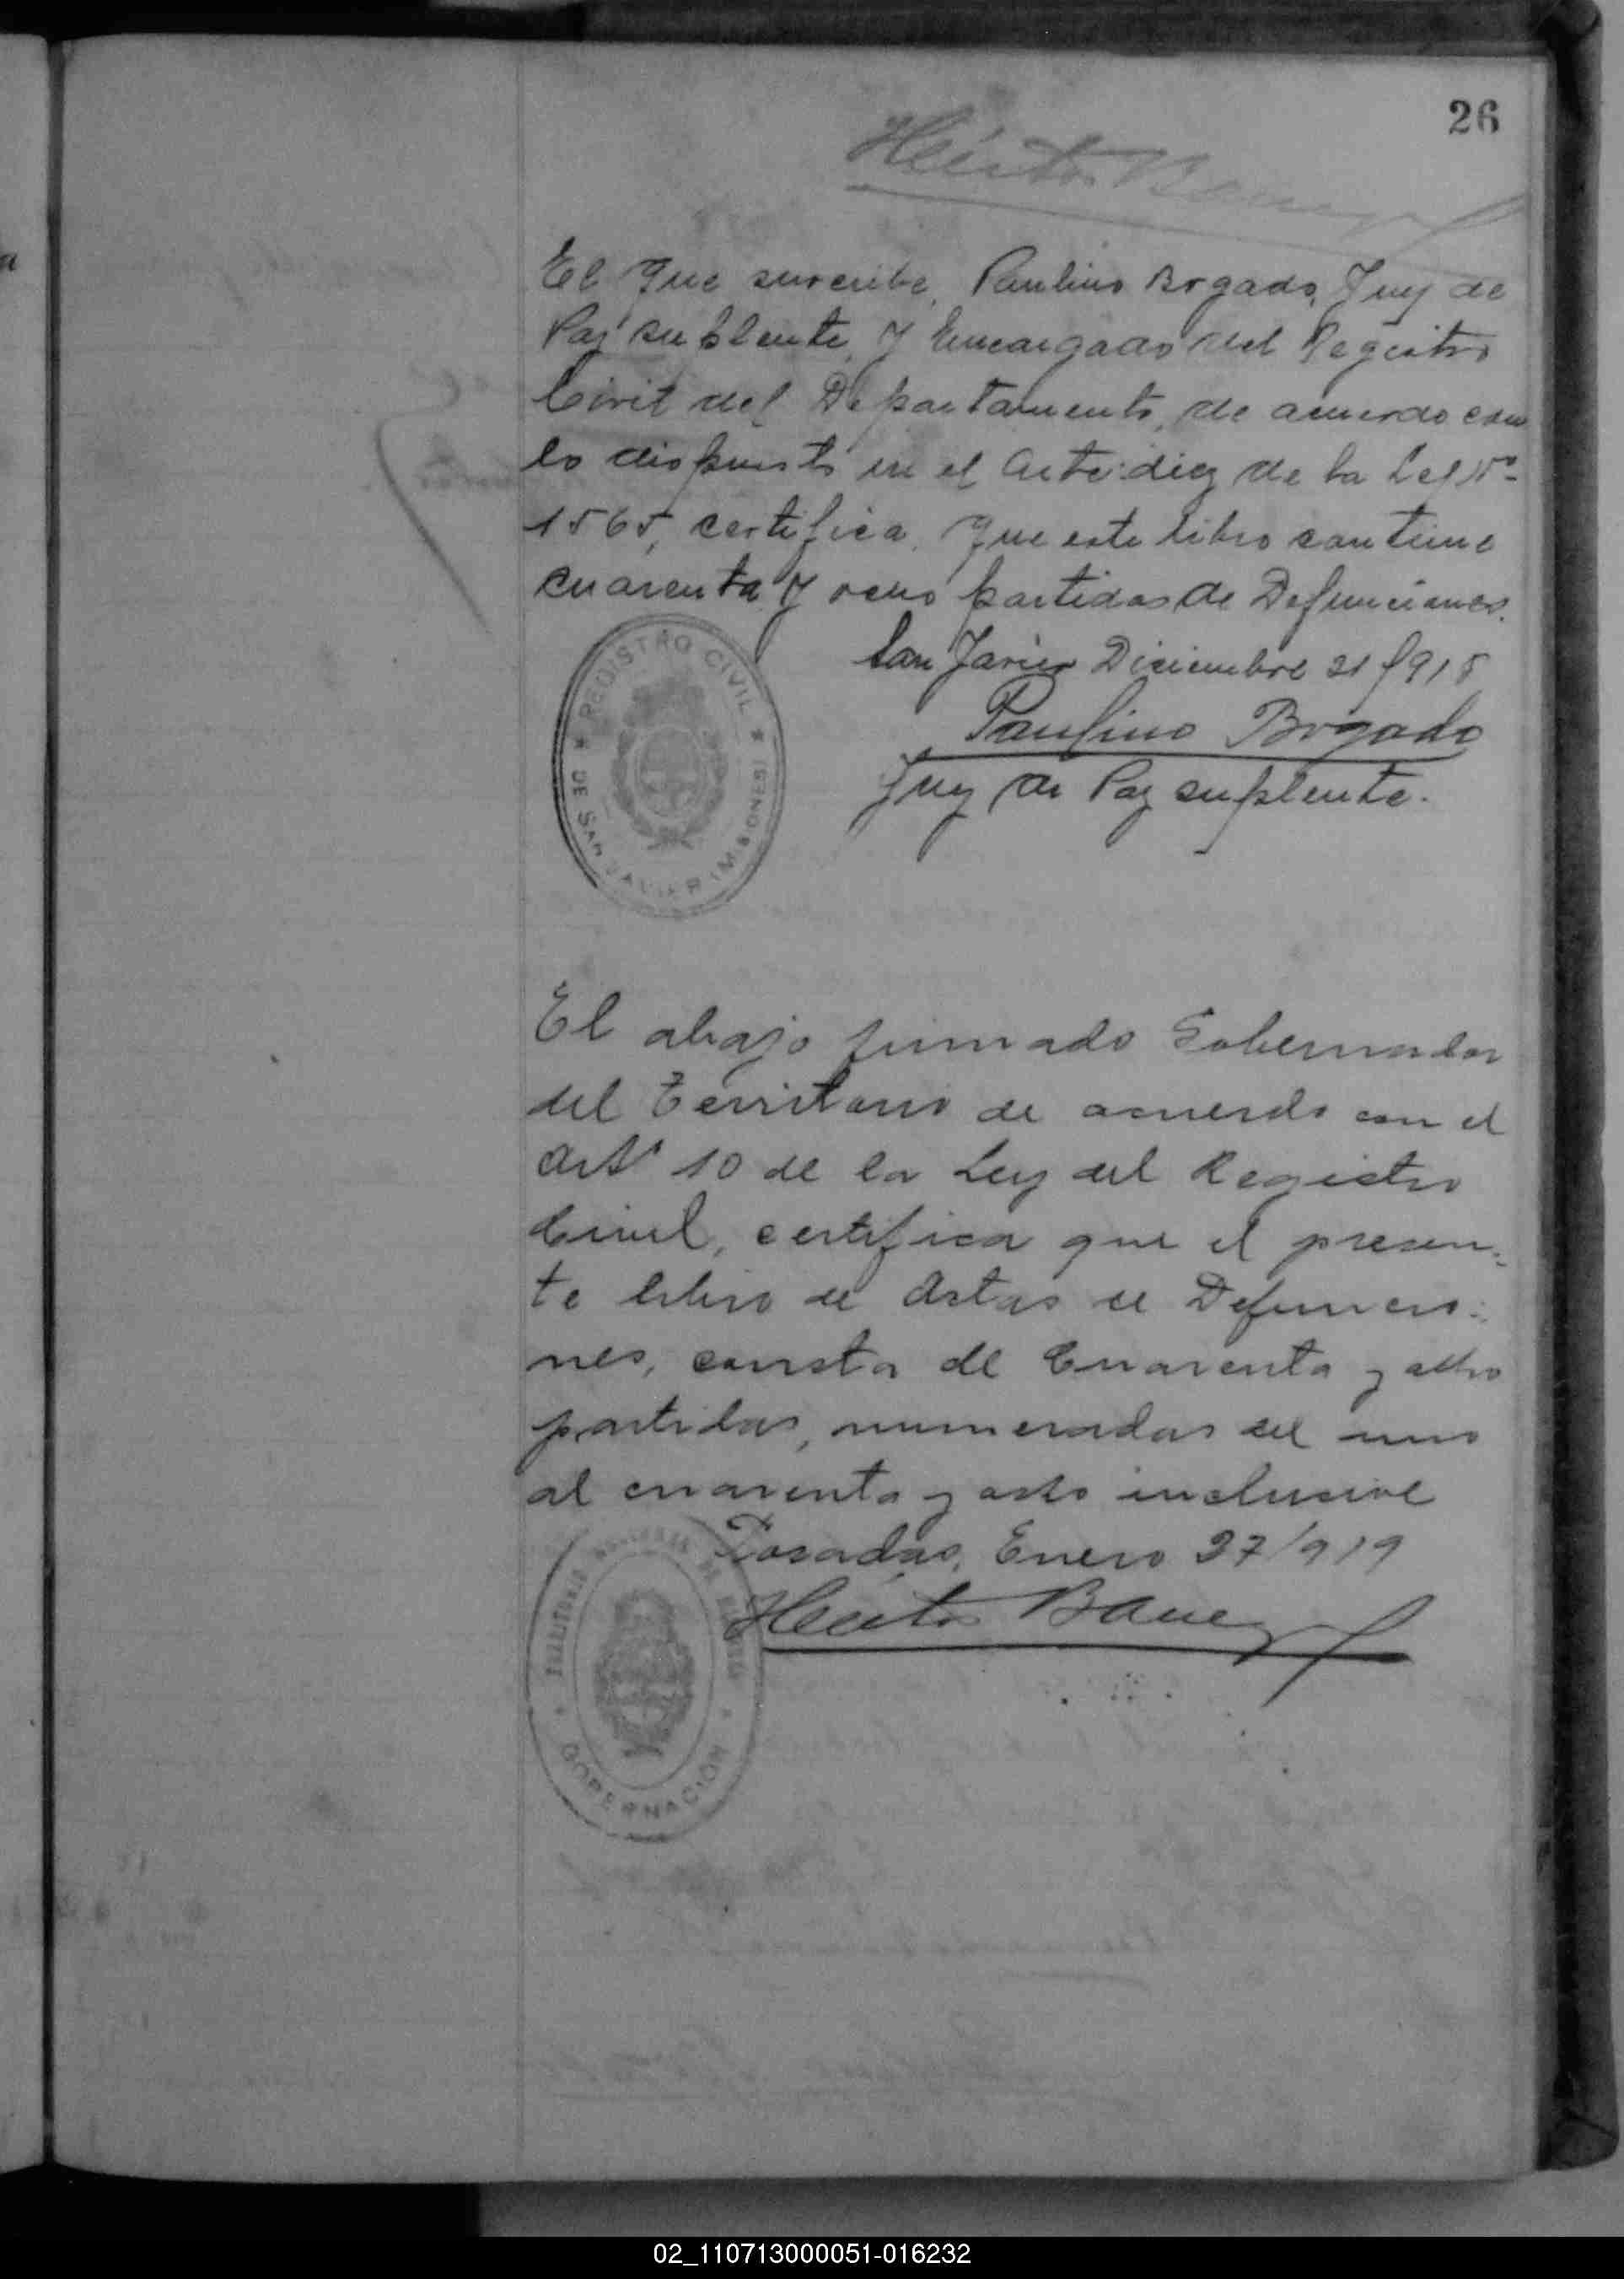 26
Héctor Barreyro
El que suscribe, Paulino Bogado, Juez de
Paz suplente, y Encargado del Registro
Civil del Departamento, de acuerdo con
lo dispuesto en el Arto diez de la Ley No
1565, certifica, que este libro contiene
cuarenta y ocho partidas de Defunciones.
San Javier Diciembre 31/918
Paulino Bogado
Juez de Paz suplente.
REGISTRO CIVIL
DE SAN JAVIER (MISIONES)
El abajo firmado Gobernador
del Territorio de acuerdo con el
Art° 10 de la Ley del Registro
Civil, certifica que el presen-
te libro de Actas de Defuncio-
nes, consta de Cuarenta y ocho
partidas, numeradas del uno
al cuarenta y ocho inclusive
Posadas, Enero 27/919
Héctor
GOBERNACIÓN
02_110713000051-016232